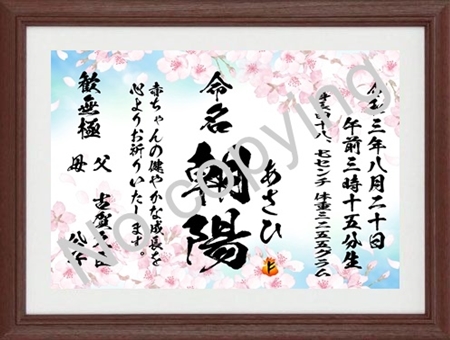 令和三年八月二十日
午前三時十五分生
身長四十八、七センチ 体重三二五五グラム
あさひ
命名 朝陽
赤ちゃんの健やかな成長を
心よりお祈りいたします。
父 古賀
母
歓無極
No copying